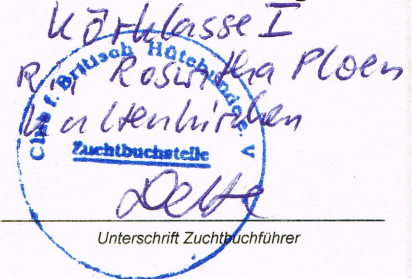 Körklasse I
R. Roswitha Ploen
Kaltenkirchen
Club f. Britisch Hütehunde e. V
Zuchtbuchstelle
Unterschrift Zuchtbuchführer